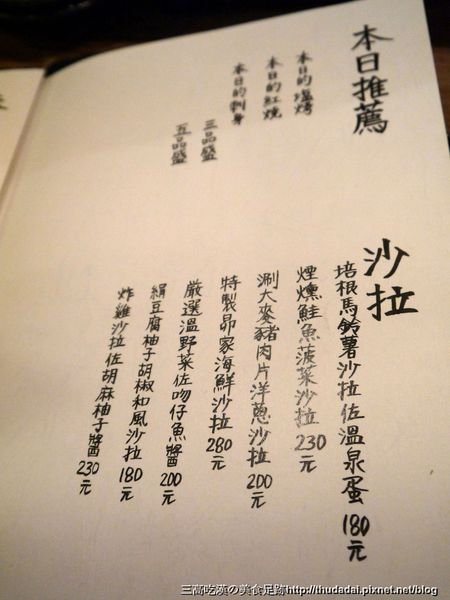 本日推薦
本日的塩烤
本日的紅燒
本日的刺身
三品盛
五品盛
沙拉
培根馬鈴薯沙拉佐溫泉蛋 180元
煙燻鮭魚菠菜沙拉 230元
涮大麥豬肉片洋蔥沙拉 200元
特製昴家海鮮沙拉 280元
嚴選溫野菜佐吻仔魚醬 200元
絹豆腐柚子胡椒和風沙拉 180元
炸雞沙拉佐胡麻柚子醬 230元
三高吃漢の美食足跡http://thudadai.pixnet.net/blog